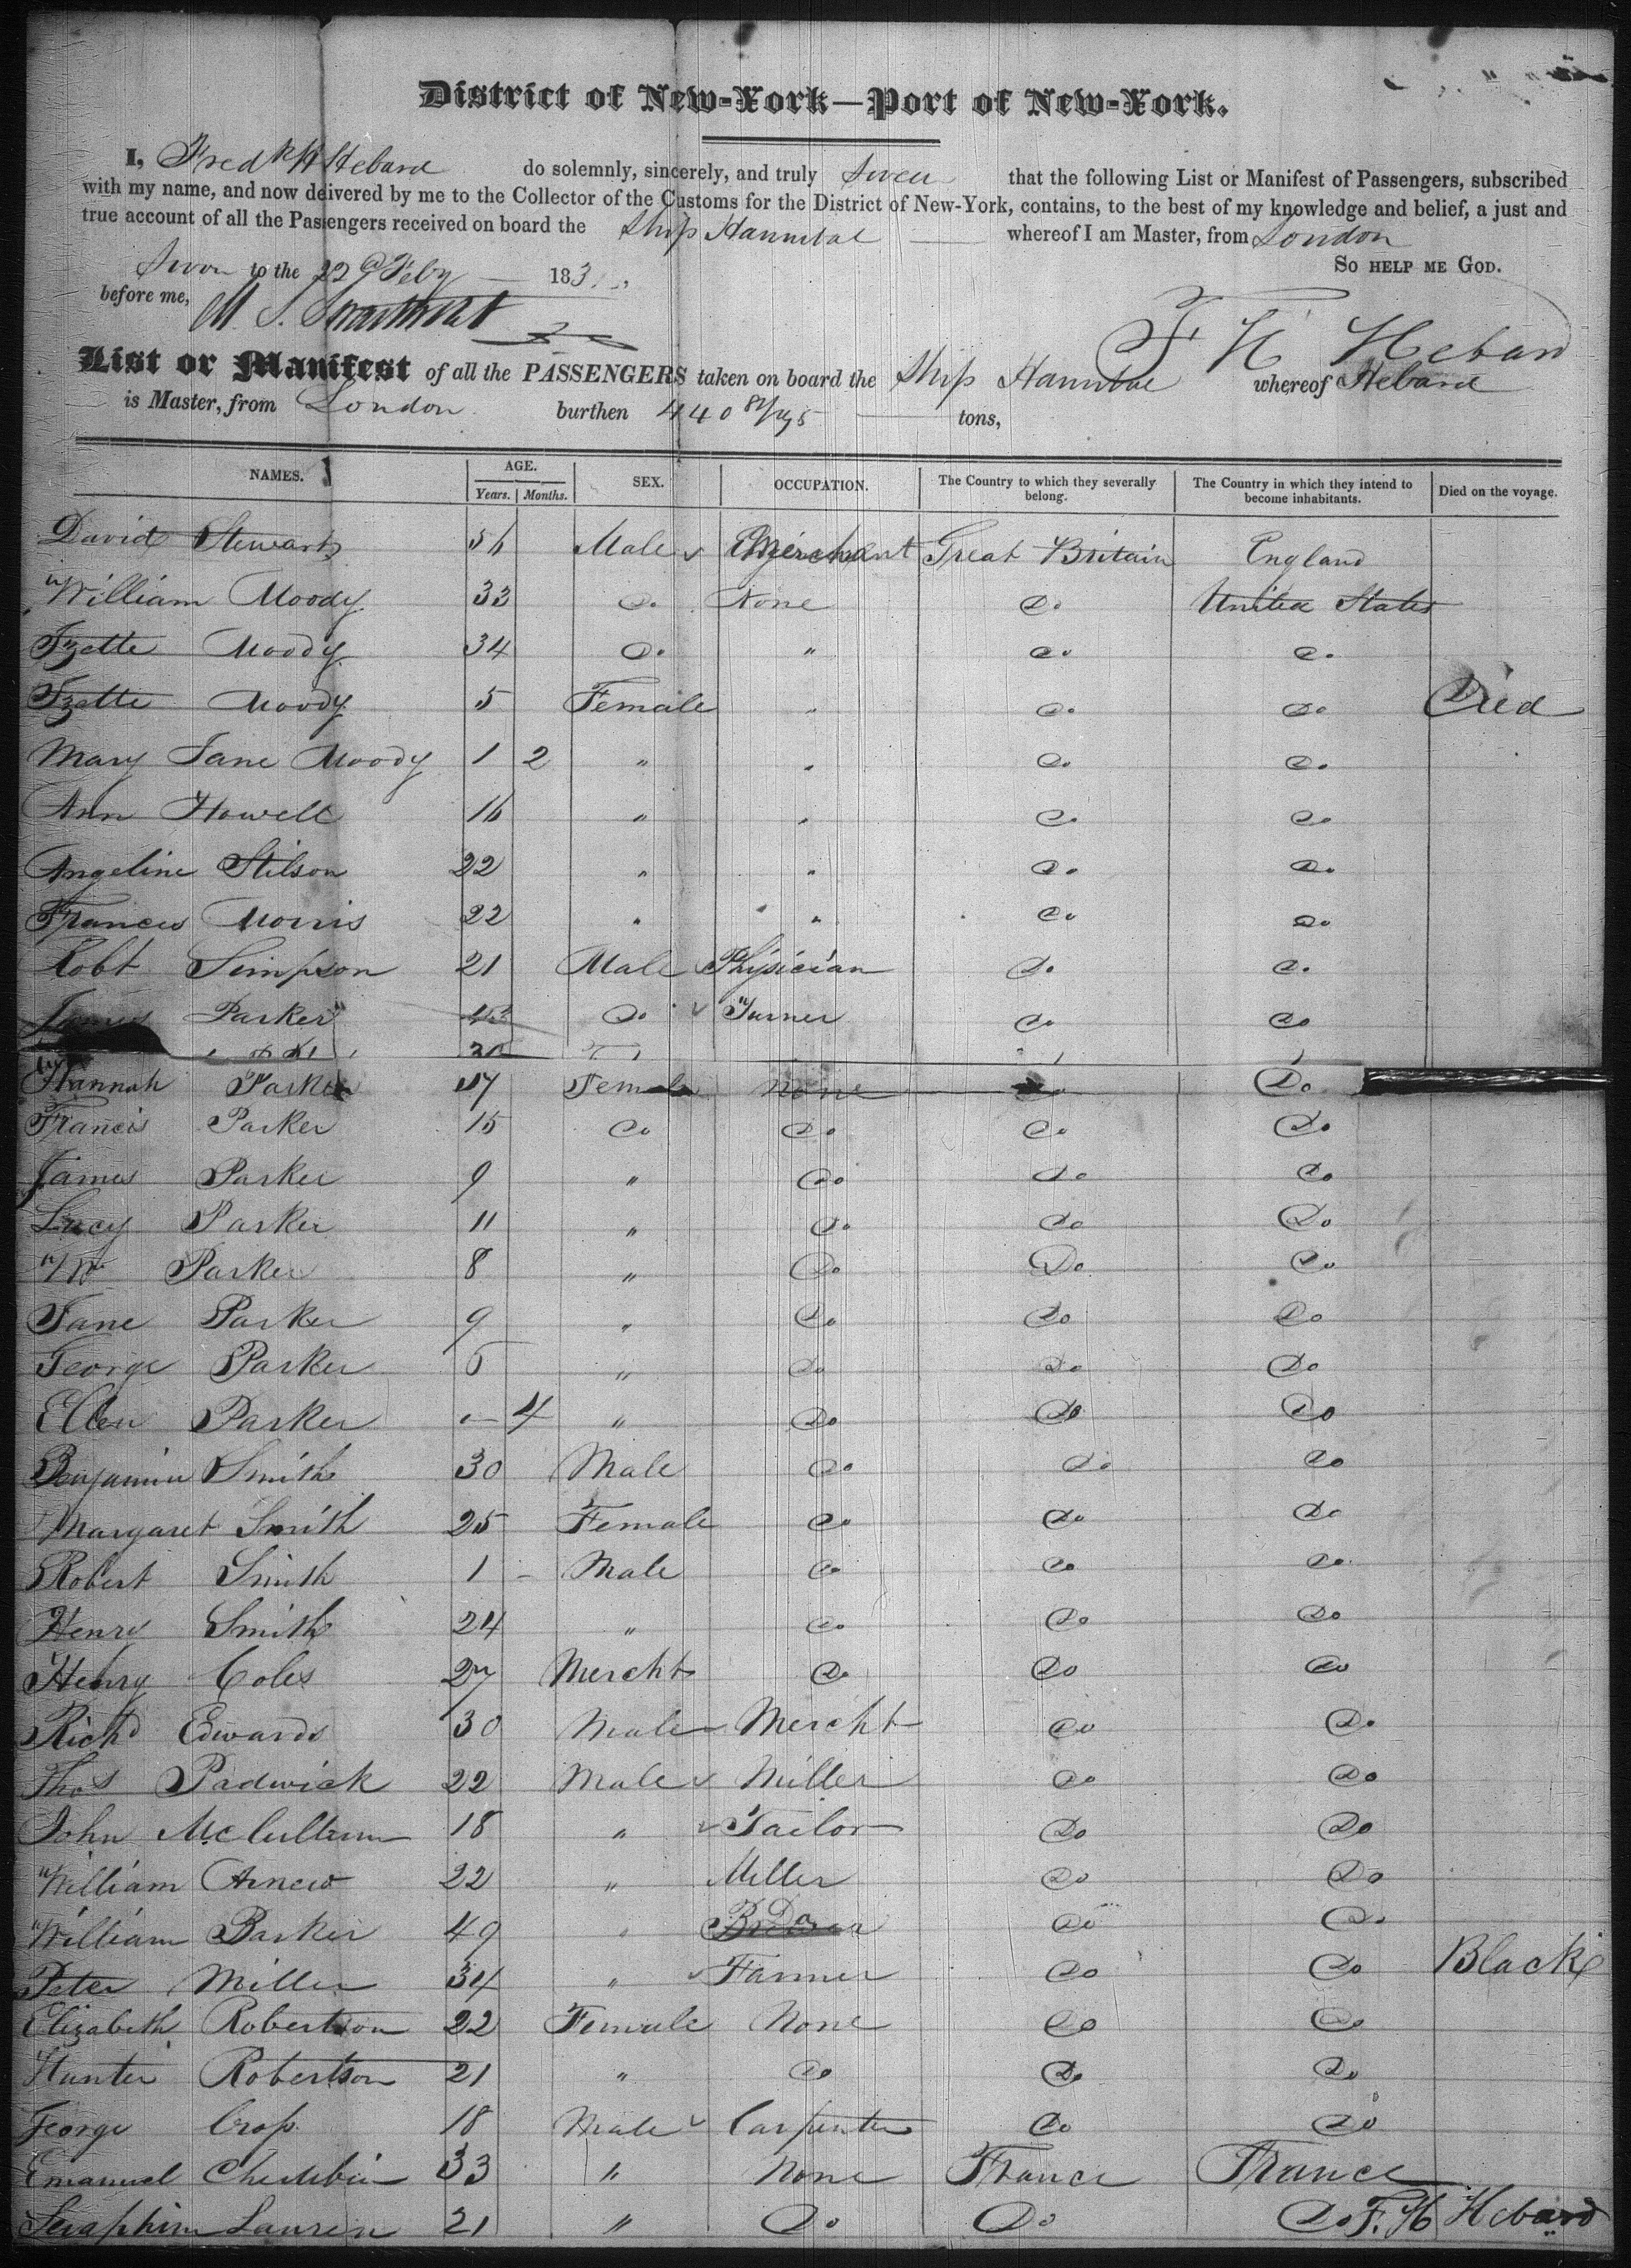 District of New-York—Port of New-York.
I, Fredk H Hebard do solemnly, sincerely, and truly swear that the following List or Manifest of Passengers, subscribed
with my name, and now delivered by me to the Collector of the Customs for the District of New-York, contains, to the best of my knowledge and belief, a just and
true account of all the Passengers received on board the Ship Hannibal whereof I am Master, from London
Sworn to the 22d Feby 183 SO HELP ME GOD.
before me, M. S. Swartwout
F H Hebard
List or Manifest of all the PASSENGERS taken on board the Ship Hannibal whereof Hebard
is Master, from London burthen 440 tons,
NAMES. AGE. Years. Months. SEX. OCCUPATION. The Country to which they severally belong. The Country in which they intend to become inhabitants. Died on the voyage.
David Stewart 56 Male Merchant Great Britain England
William Moody 33 Do None Do United States
Izette Moody 34 Do " Do Do
Izette Moody 5 Female " Do Do Died
Mary Jane Moody 1 2 " " Do Do
Ann Howell 16 " " Do Do
Angeline Stilson 22 " " Do Do
Frances Morris 22 " " Do Do
Robt Simpson 21 Male Physician Do Do
James Parker 43 Do Turner Do Do
Hannah Parker 17 Female None Do Do
Francis Parker 15 Do Do Do Do
James Parker 9 " Do Do Do
Lucy Parker 11 " Do Do Do
Wm Parker 8 " Do Do Do
Jane Parker 9 " Do Do Do
George Parker 6 " Do Do Do
Ellen Parker — 4 " Do Do Do
Benjamin Smith 30 Male Do Do Do
Margaret Smith 25 Female Do Do Do
Robert Smith 1 - Male Do Do Do
Henry Smith 24 " Do Do Do
Henry Coles 27 Mercht Do Do Do
Richd Edwards 30 Male Mercht Do Do
Thos Padwick 22 Male Miller Do Do
John McCullum 18 " Tailor Do Do
William Arnew 22 " Miller Do Do
William Barker 49 " Do Do Do
Peter Miller 34 " Farmer Do Do Black
Elizabeth Robertson 22 Female None Do Do
Hunter Robertson 21 " Do Do Do
George Crop 18 Male Carpenter Do Do
Emanuel 33 " None France France
Seraphim Lauren 21 " Do Do Do F. H Hebard